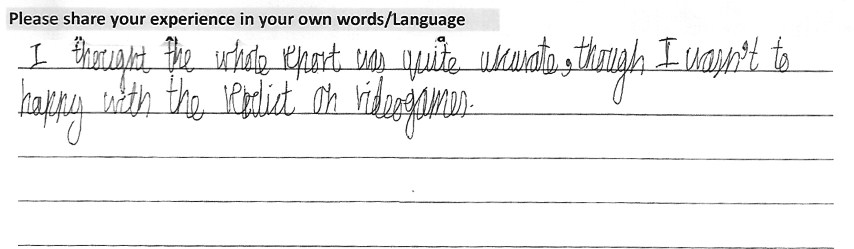 Please share your experience in your own words/Language
I thought the whole report was quite accurate, though I wasn't to
happy with the verdict on videogames.